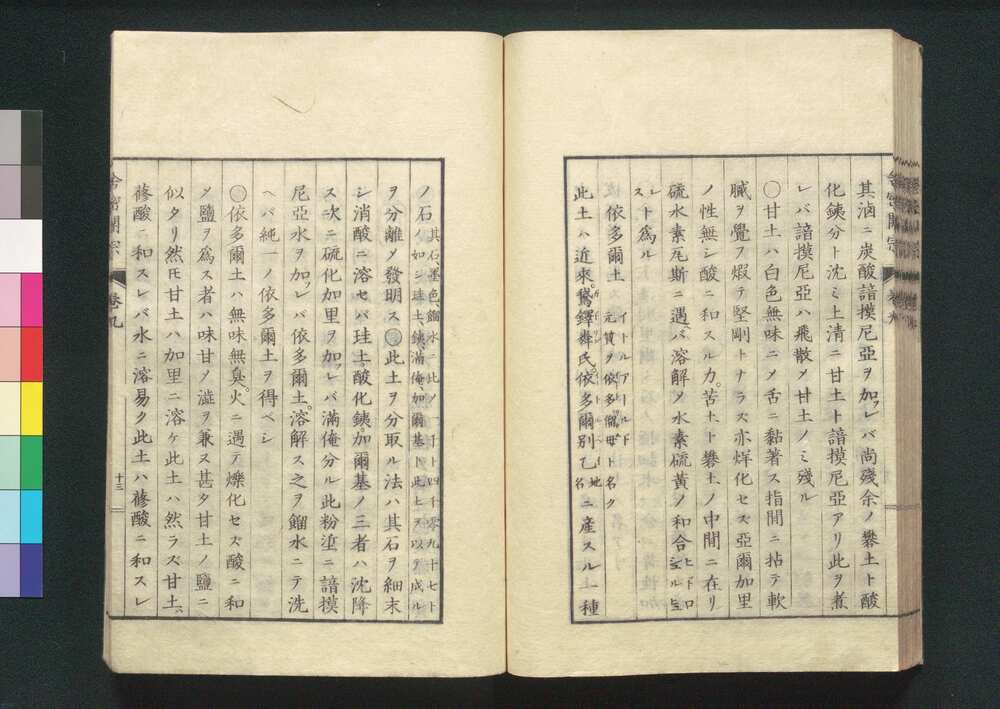 其滷ニ炭酸諳摸尼亞ヲ加フレバ尚殘余ノ礬土ト酸
化銕分ト沈ミ上清ニ甘土ト諳摸尼亞アリ此ヲ煮
レバ諳摸尼亞ハ飛散メ甘土ノミ殘ル
〇甘土ハ白色無味ニメ舌ニ黏著ス指間ニ拈テ軟
膩ヲ覺ヲ煆テ堅剛トナラス亦烊化セズ亞爾加里
ノ性無シ酸ニ和スルカ。苦土ト礬土ノ中間ニ在リ
硫水素瓦斯ニ遇ヘバ溶解メ水素硫黃ノ和合
ストル
レト爲ル
依多爾土 イトルアールド 元質ヲ依多儞母ト名ク
此土ハ近來。依多爾別乙 地名 ニ產スル一種
ノ石 其石、墨色、
ヲ分離メ發明ス〇此土ヲ分取ル法ハ其石ヲ細末
シ消酸ニ溶セバ珪土、酸化銕、加爾基ノ三者ハ沈降
ス次ニ硫化加里ヲ加フレバ滿俺分ル此粉塗ニ諳摸
尼亞水ヲ加フレバ依多爾土。溶解ス之ヲ餾水ニテ洗
ヘバ純一ノ依多爾土ヲ得ベシ
〇依多爾土ハ無味無臭。火ニ遇テ爍化セズ酸ニ和
メ鹽ヲ爲ス者ハ味甘メ澁ヲ兼ヌ甚タ甘土ノ鹽ニ
似タリ然𪜈甘土ハ加里ニ溶ケ此土ハ然ラズ甘土ハ
蓚酸ニ和スレバ水ニ溶易ク此土ハ蓚酸ニ和スレ
舍密開宗
卷九
十三